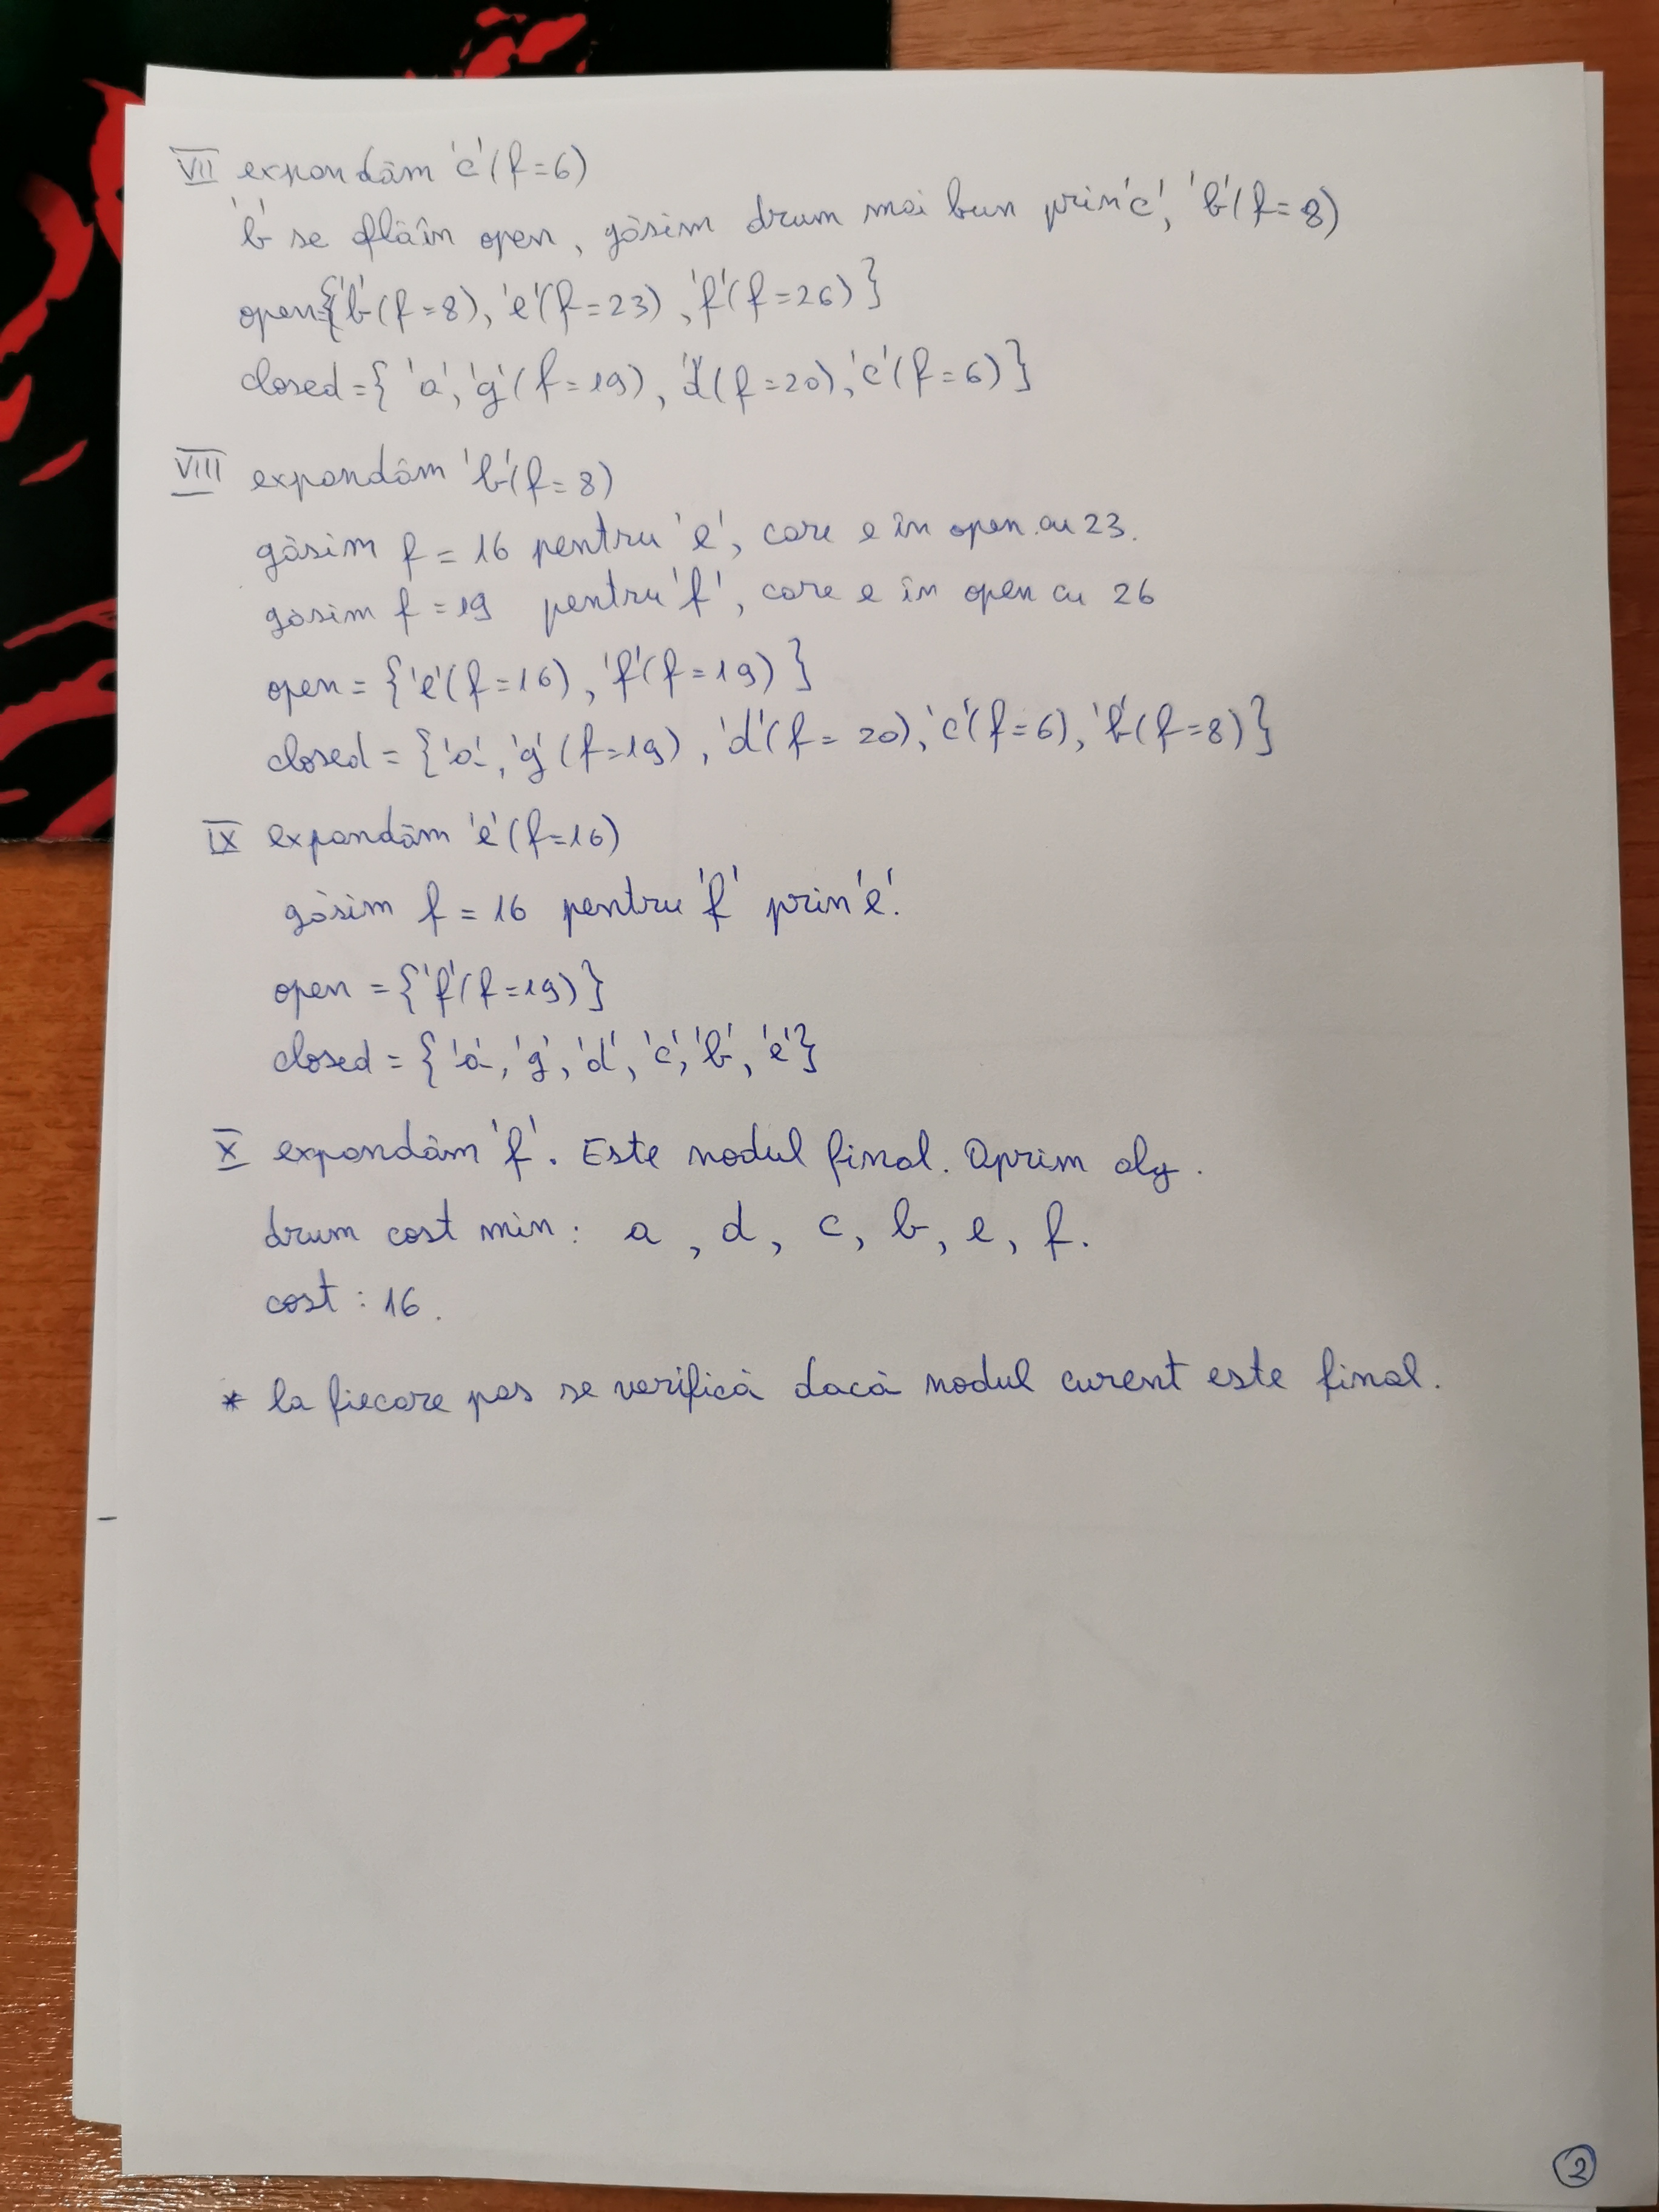 VII expandăm 'c'(f=6)
'b' se află în open, găsim drum mai bun prin 'c', 'b'(f=8)
open={'b'(f=8), 'e'(f=23), 'f'(f=26)}
closed={'a', 'g'(f=19), 'd'(f=20), 'c'(f=6)}
VIII expandăm 'b'(f=8)
găsim f=16 pentru 'e', care e în open cu 23.
găsim f=19 pentru 'f', care e în open cu 26
open={'e'(f=16), 'f'(f=19)}
closed={'a', 'g'(f=19), 'd'(f=20), 'c'(f=6), 'b'(f=8)}
IX expandăm 'e'(f=16)
găsim f=16 pentru 'f' prin 'e'.
open={'f'(f=19)}
closed={'a', 'g', 'd', 'c', 'b', 'e'}
X expandăm 'f'. Este nodul final. Oprim alg.
drum cost min: a, d, c, b, e, f.
cost: 16.
* la fiecare pas se verifică dacă nodul curent este final.
2